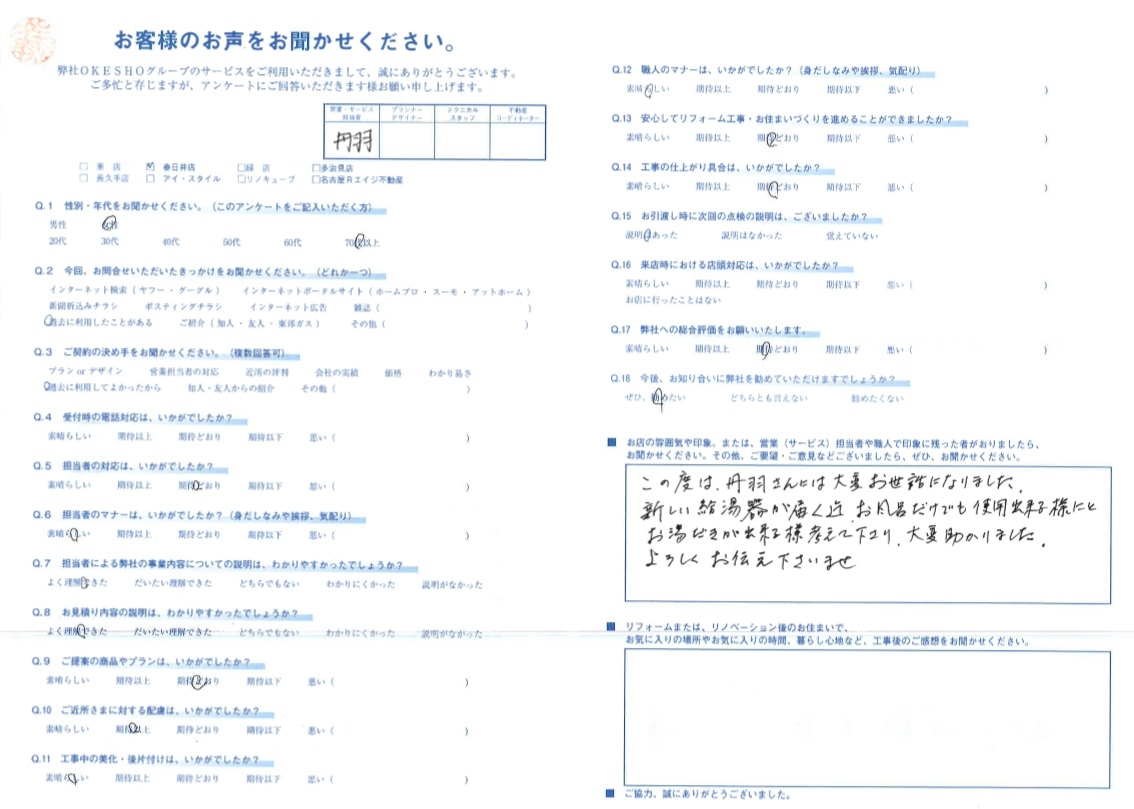 お客様のお声をお聞かせください。
弊社OKESHOグループのサービスをご利用いただきまして、誠にありがとうございます。
ご多忙と存じますが、アンケートにご回答いただきます様お願い申し上げます。
営業・サービス担当者 プランナーデザイナー テクニカルスタッフ 不動産コーディネーター
丹羽
□ 東 店 ☑ 春日井店 □緑 店 □多治見店
□ 長久手店 □ アイ・スタイル □リノキューブ □名古屋Rエイジ不動産
Q.1 性別・年代をお聞かせください。（このアンケートをご記入いただく方）
男性 女性
20代 30代 40代 50代 60代 70代以上
Q.2 今回、お問合せいただいたきっかけをお聞かせください。（どれか一つ）
インターネット検索（ヤフー・グーグル） インターネットポータルサイト（ホームプロ・スーモ・アットホーム）
新聞折込みチラシ ポスティングチラシ インターネット広告 雑誌（ ）
過去に利用したことがある ご紹介（知人・友人・東邦ガス） その他（ ）
Q.3 ご契約の決め手をお聞かせください。（複数回答可）
プラン or デザイン 営業担当者の対応 近所の評判 会社の実績 価格 わかり易さ
過去に利用してよかったから 知人・友人からの紹介 その他（ ）
Q.4 受付時の電話対応は、いかがでしたか？
素晴らしい 期待以上 期待どおり 期待以下 悪い（ ）
Q.5 担当者の対応は、いかがでしたか？
素晴らしい 期待以上 期待どおり 期待以下 悪い（ ）
Q.6 担当者のマナーは、いかがでしたか？（身だしなみや挨拶、気配り）
素晴らしい 期待以上 期待どおり 期待以下 悪い（ ）
Q.7 担当者による弊社の事業内容についての説明は、わかりやすかったでしょうか？
よく理解できた だいたい理解できた どちらでもない わかりにくかった 説明がなかった
Q.8 お見積り内容の説明は、わかりやすかったでしょうか？
よく理解できた だいたい理解できた どちらでもない わかりにくかった 説明がなかった
Q.9 ご提案の商品やプランは、いかがでしたか？
素晴らしい 期待以上 期待どおり 期待以下 悪い（ ）
Q.10 ご近所さまに対する配慮は、いかがでしたか？
素晴らしい 期待以上 期待どおり 期待以下 悪い（ ）
Q.11 工事中の美化・後片付けは、いかがでしたか？
素晴らしい 期待以上 期待どおり 期待以下 悪い（ ）
Q.12 職人のマナーは、いかがでしたか？（身だしなみや挨拶、気配り）
素晴らしい 期待以上 期待どおり 期待以下 悪い（ ）
Q.13 安心してリフォーム工事・お住まいづくりを進めることができましたか？
素晴らしい 期待以上 期待どおり 期待以下 悪い（ ）
Q.14 工事の仕上がり具合は、いかがでしたか？
素晴らしい 期待以上 期待どおり 期待以下 悪い（ ）
Q.15 お引渡し時に次回の点検の説明は、ございましたか？
説明はあった 説明はなかった 覚えていない
Q.16 来店時における店頭対応は、いかがでしたか？
素晴らしい 期待以上 期待どおり 期待以下 悪い（ ）
お店に行ったことはない
Q.17 弊社への総合評価をお願いいたします。
素晴らしい 期待以上 期待どおり 期待以下 悪い（ ）
Q.18 今後、お知り合いに弊社を勧めていただけますでしょうか？
ぜひ、勧めたい どちらとも言えない 勧めたくない
■ お店の雰囲気や印象。または、営業（サービス）担当者や職人で印象に残った者がおりましたら、
お聞かせください。その他、ご要望・ご意見などございましたら、ぜひ、お聞かせください。
この度は、丹羽さんには大変お世話になりました。
新しい給湯器が届く迄、お風呂だけでも使用出来る様にと
お湯だきが出来る様考えて下さり、大変助かりました。
よろしくお伝え下さいませ
■ リフォームまたは、リノベーション後のお住まいで、
お気に入りの場所やお気に入りの時間、暮らし心地など、工事後のご感想をお聞かせください。
■ ご協力、誠にありがとうございました。